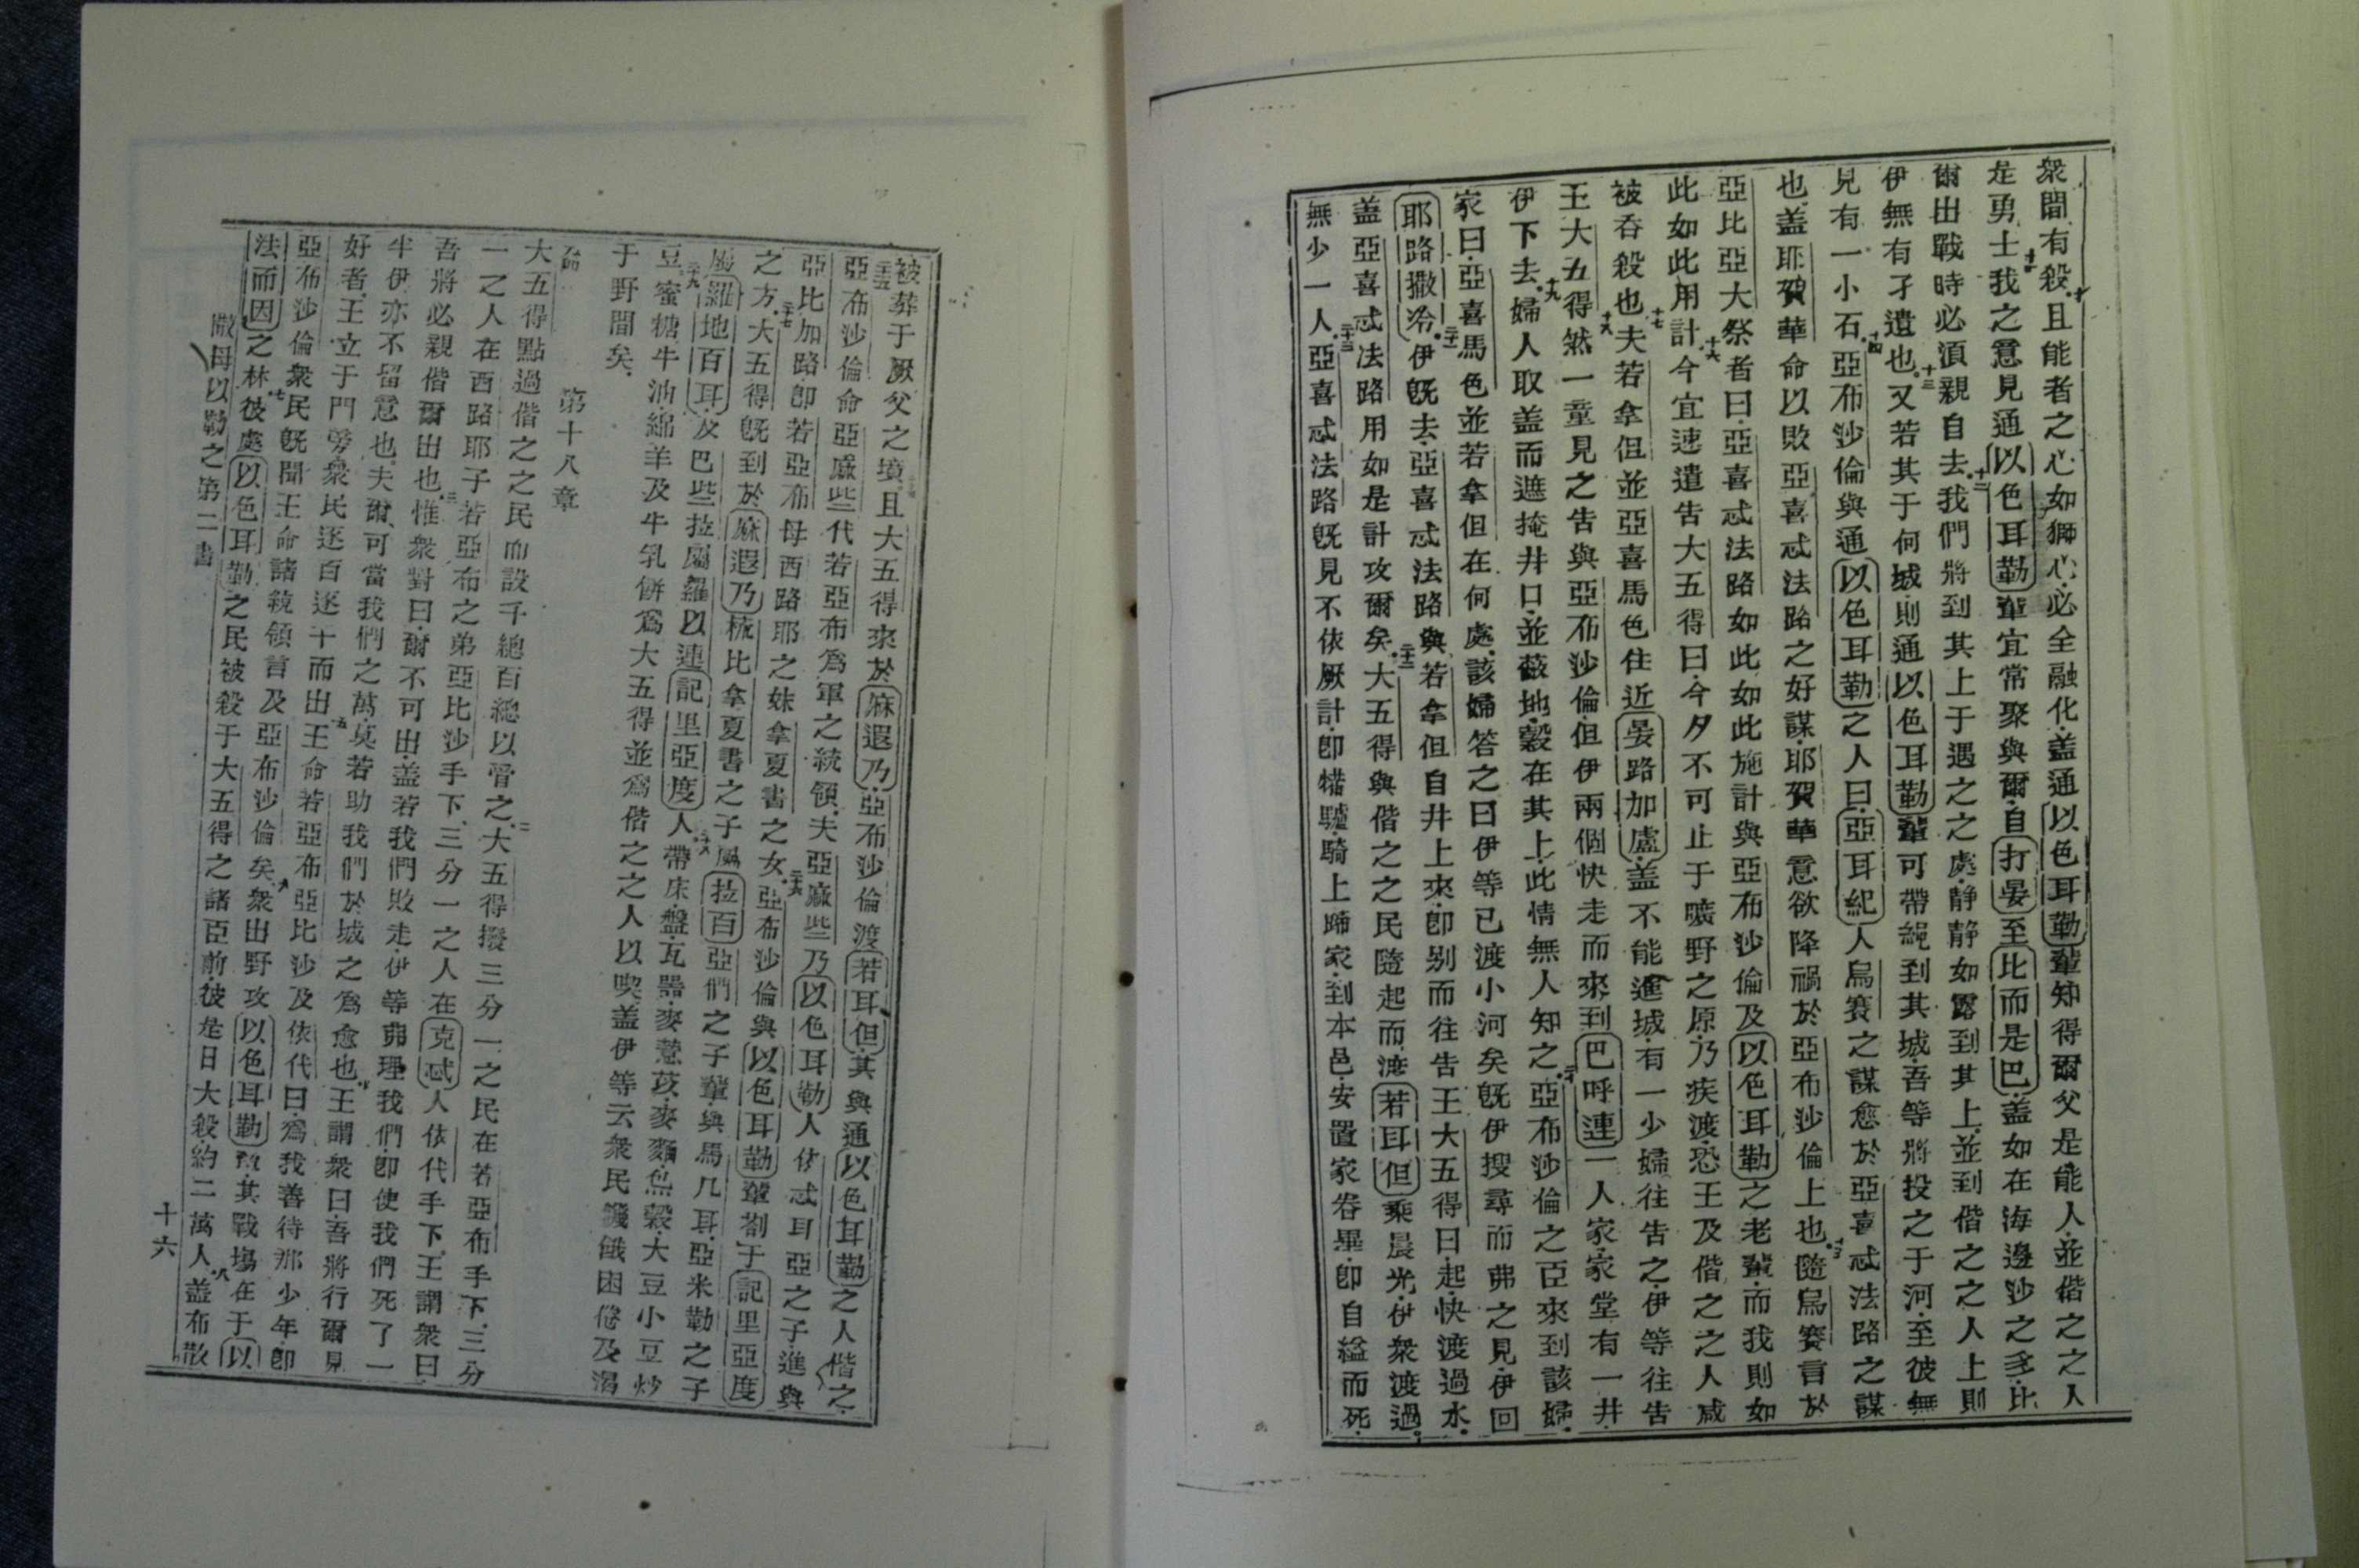 衆間有殺十且能者之心如獅心必全融化盖通以色耳勒輩知得爾父是能人並偕之之人
是勇士十一我之意見通以色耳勒輩宜常聚與爾自打晏至比而是巴盖如在海邊沙之多比
爾出戰時必須親自去十二我們將到其上于遇之之處静静如露到其上並到偕之之人上則
伊無有孑遺也十三又若其于何城則通以色耳勒輩可帶繩到其城吾等將投之于河至彼無
見有一小石十四亞布沙倫與通以色耳勒之人曰亞耳紀人烏賽之謀愈於亞喜忒法路之謀
也盖耶賀華命以敗亞喜忒法路之好謀耶賀華意欲降禍於亞布沙倫上也十五隨烏賽言於
亞比亞大祭者曰亞喜忒法路如此如此施計與亞布沙倫及以色耳勒之老輩而我則如
此如此用計十六今宜速遣告大五得曰今夕不可止于曠野之原乃疾渡恐王及偕之之人咸
被吞殺也十七夫若拿但並亞喜馬色住近晏路加盧盖不能進城有一少婦往告之伊等往告
王大五得十八然一童見之告與亞布沙倫但伊兩個快走而來到巴呼連一人家家堂有一井
伊下去十九婦人取盖而遮掩井口並蔽地穀在其上此情無人知之二十亞布沙倫之臣來到該婦
家曰亞喜馬色並若拿但在何處該婦答之曰伊等已渡小河矣既伊搜尋而弗之見伊回
耶路撒冷二十一伊既去亞喜忒法路與若拿但自井上來卽别而往告王大五得曰起快渡過水
盖亞喜忒法路用如是計攻爾矣二十二大五得與偕之之民隨起而渡若耳但乘晨光伊衆渡過
無少一人二十三亞喜忒法路既見不依厥計卽犕驢騎上歸家到本邑安置家眷畢卽自縊而死
被葬于厥父之墳且大五得來於麻遐乃亞布沙倫渡若耳但其與通以色耳勒之人偕之
二十五亞布沙倫命亞麻些代若亞布爲軍之統領夫亞麻些乃以色耳勒人依忒耳亞之子進與
亞比加路卽若亞布母西路耶之妹拿夏書之女二十六亞布沙倫與以色耳勒輩劄于記里亞度
之方二十七大五得既到於麻遐乃梳比拿夏書之子風拉百亞們之子輩與馬几耳亞米勒之子
羅地百耳及巴些拉屬羅以連記里亞度人二十八帶床盤瓦器麥薏苡麥麵焦穀大豆小豆炒
豆二十九蜜糖牛油綿羊及牛乳餅爲大五得並爲偕之之人以喫盖伊等云衆民饑餓困倦及渴
于野間矣
第十八章
大五得點過偕之之民而設千總百總以管之二大五得撥三分一之民在若亞布手下三分
一之人在西路耶子若亞布之弟亞比沙手下三分一之人在克忒人依代手下王謂衆曰
吾將必親偕爾出也三惟衆對曰爾不可出盖若我們敗走伊等弗理我們卽使我們死了一
半伊亦不留意也夫爾可當我們之萬莫若助我們於城之爲愈也四王謂衆曰吾將行爾見
好者王立于門旁衆民逐百逐千而出五王命若亞布亞比沙及依代曰爲我善待那少年卽
亞布沙倫衆民既聞王命諸統領言及亞布沙倫矣六衆出野攻以色耳勒輩其戰塲在于以
法而因之林七彼處以色耳勒之民被殺于大五得之諸臣前彼是日大殺約二萬人八盖布散
撒母以勒之第二書
十六